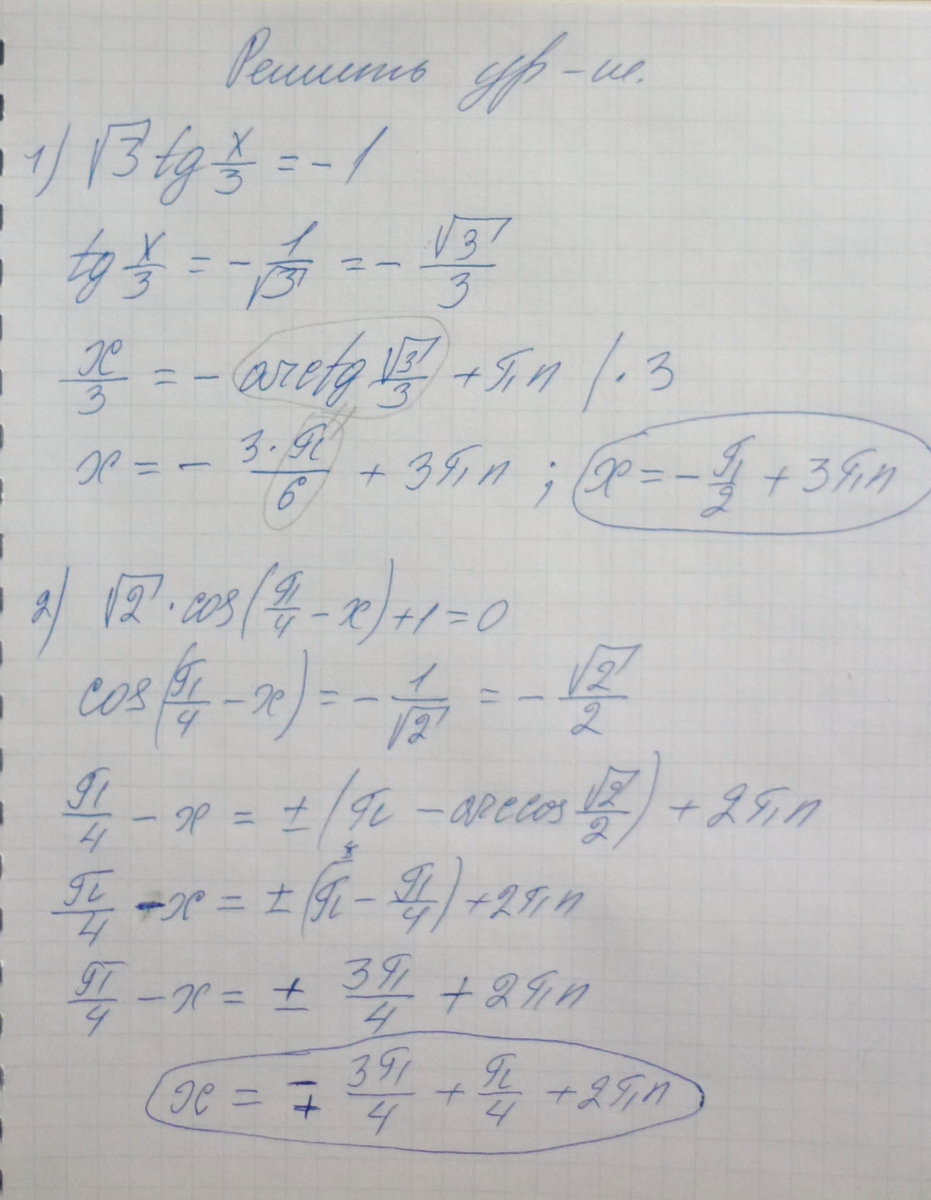 Решить ур-ие.
1) √3 tg x/3 = -1
tg x/3 = - 1/√3 = - √3/3
x/3 = - arctg √3/3 + πn /·3
x = - 3·π/6 + 3πn ; x = - π/2 + 3πn
2) √2 · cos(π/4 - x) + 1 = 0
cos(π/4 - x) = - 1/√2 = - √2/2
π/4 - x = ± (π - arccos √2/2) + 2πn
π/4 - x = ± (π - π/4) + 2πn
π/4 - x = ± 3π/4 + 2πn
x = ∓ 3π/4 + π/4 + 2πn